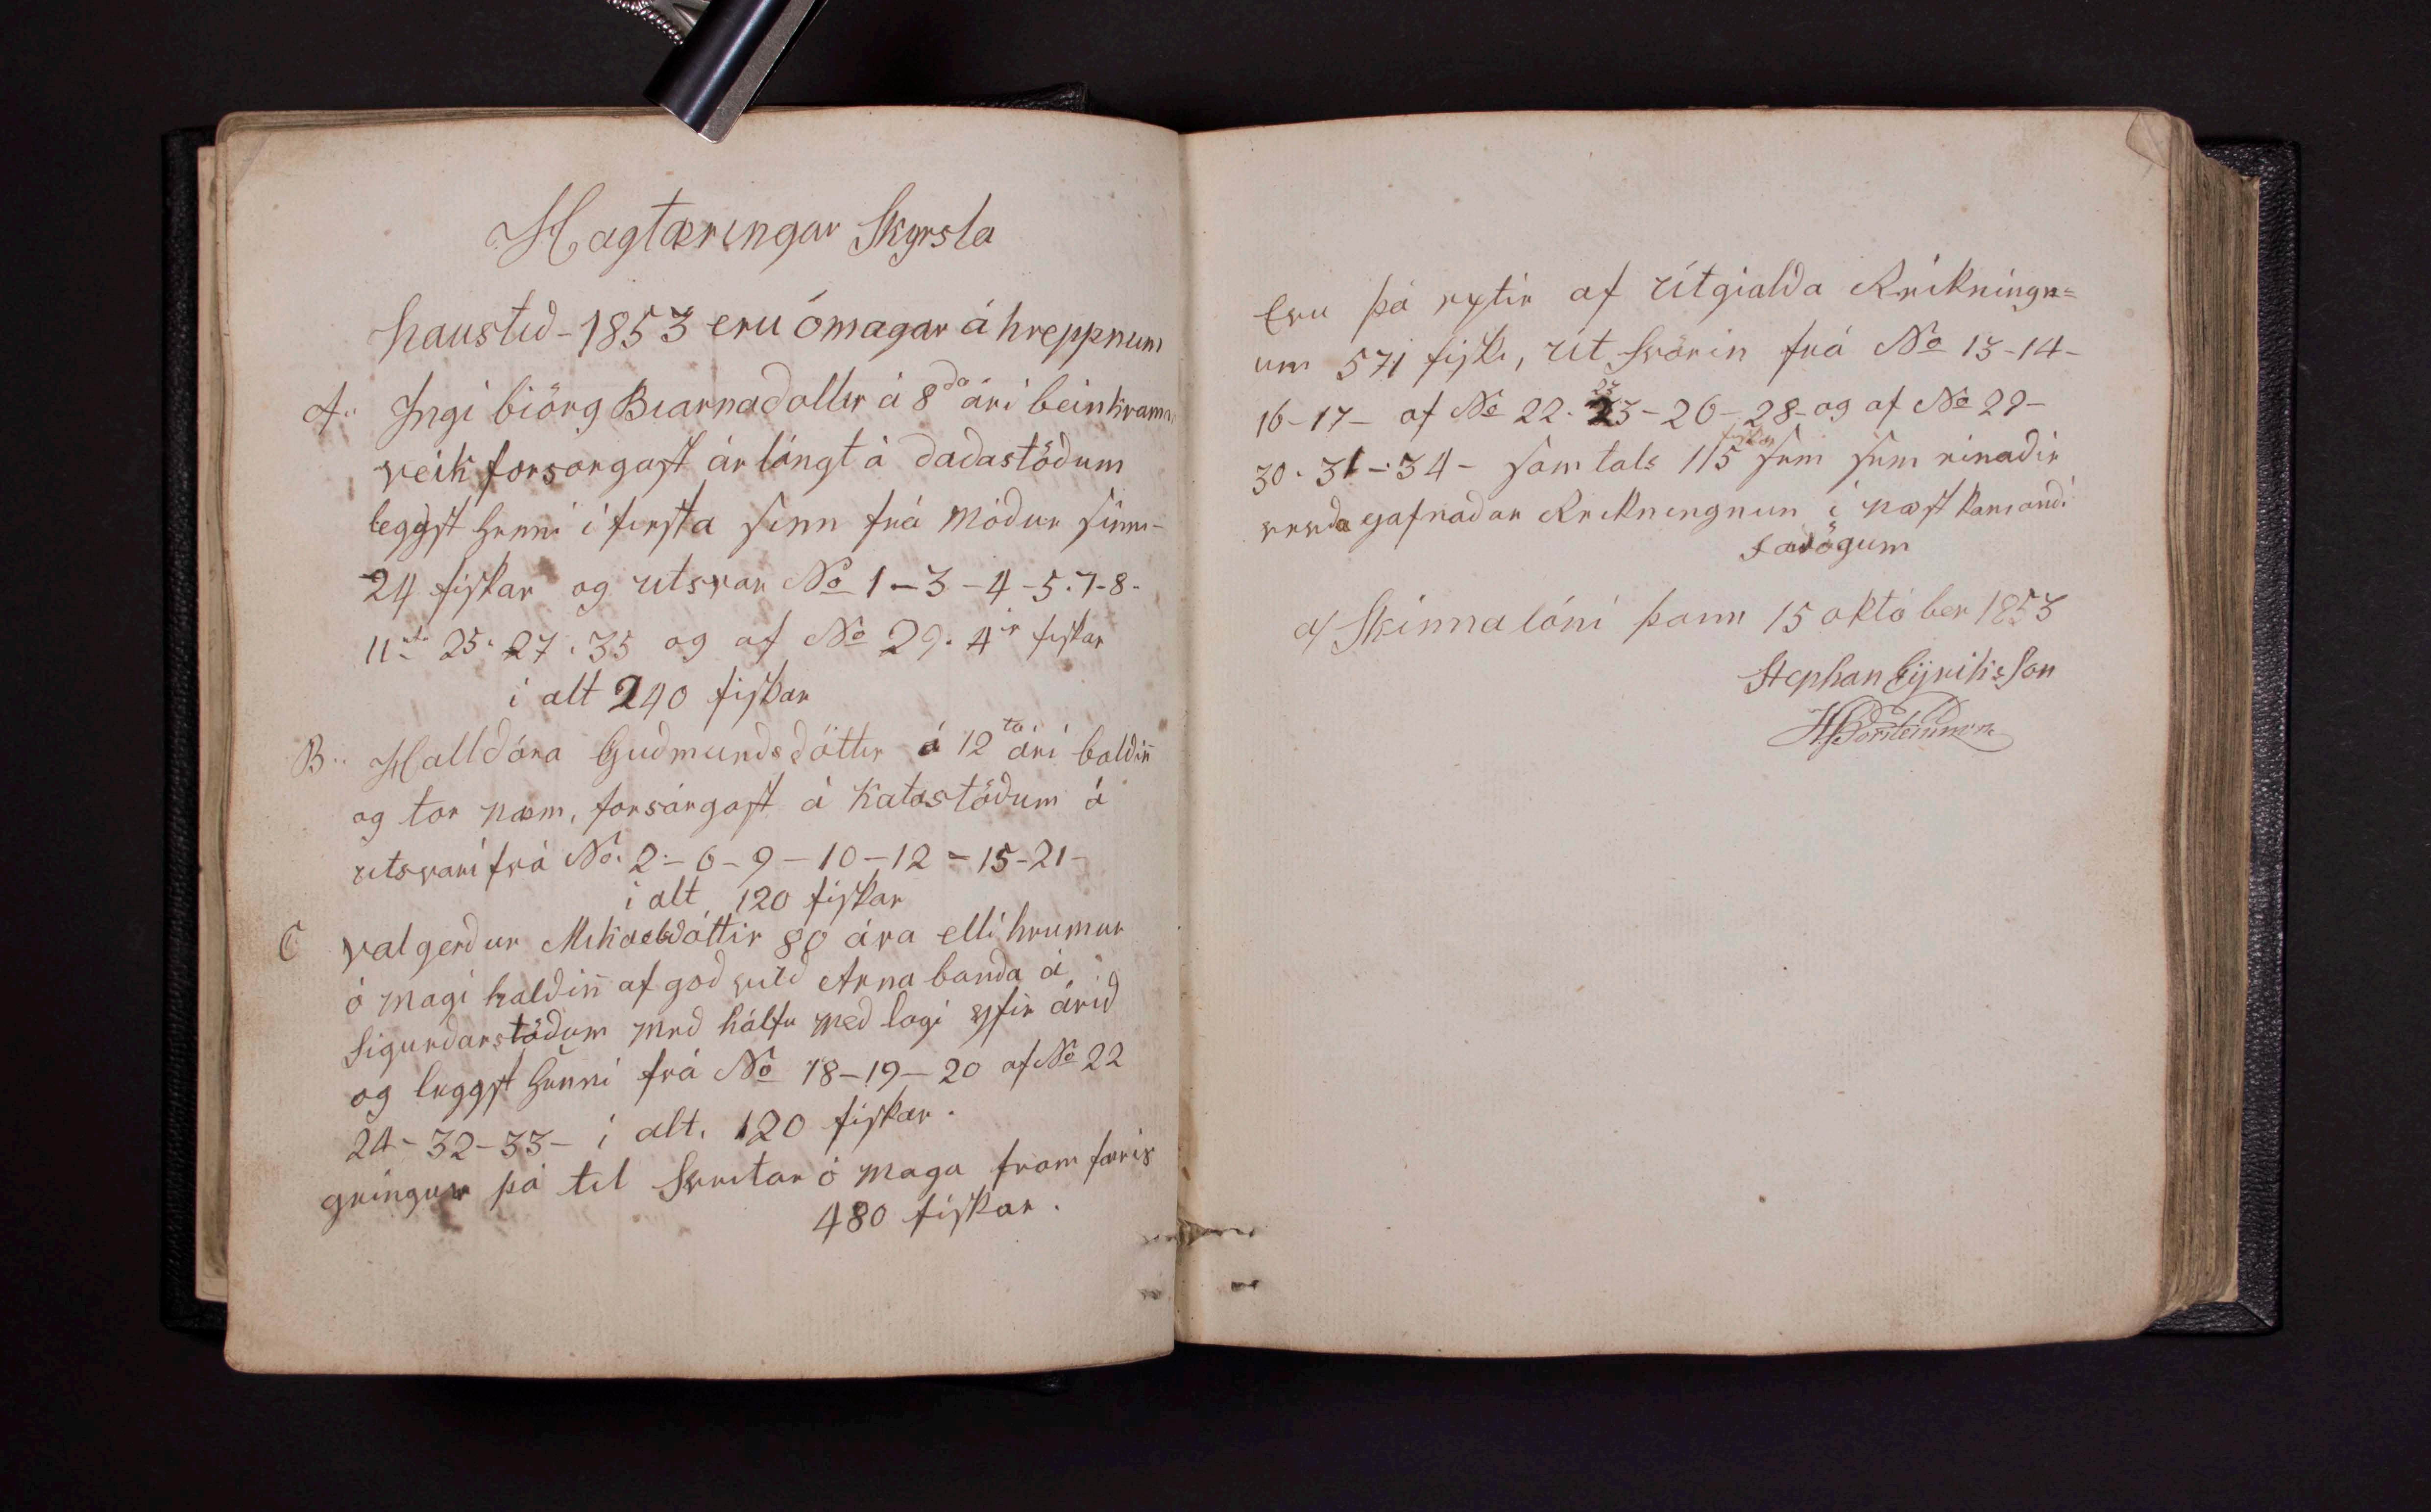 Hagtæringar Skyrsla
haustið - 1853 eru ómagar á hreppnum
A.. Ingi biörg Biarnadottir á 8da ári beinkram
veik forsorgast árlángt á Daðastöðum
leggst henni i firsta sinn frá móður sinni -
24 fiskar og utsvar No 1 - 3 - 4 - 5 . 7 - 8 -
11ta 25 . 27 . 35 og af No 29 . 4ir fiskar
i alt 240 fiskar
B.. Halldóra Guðmundsdóttir á 12ta ári baldin̄
og tor næm, forsorgast á Katastöðum á
utsvari frá No. 2 - 6 - 9 - 10 - 12 - 15 - 21 -
i alt 120 fiskar
C Valgerdur Mikaelsdóttir 80 ára elli hrumur
ó magi haldin̄ af god vild Arna bonda á
Sigurdarstöðum með hálfu með lagi yfir árið
og leggst henni frá No 18 - 19 - 20 af No 22
24 - 32 - 33 - i alt. 120 fiskar .
geingur þá til Sveitar ó maga fram færis
480 fiskar .
Eru þá eptir af Utgialda Reikningn=
um 571 fisk, Ut Svörin frá No 13 - 14 -
16 - 17 - af No 22 . 23 - 26 - 28 - og af No 29 -
30 . 31 - 34 - samtals 115 fiskar sem sem
verda Reikningnum i næst komandi
Fardögum
a/ Skinnalóni þann 15 október 1853
Stephan Eyriksson
H Þorsteinsson